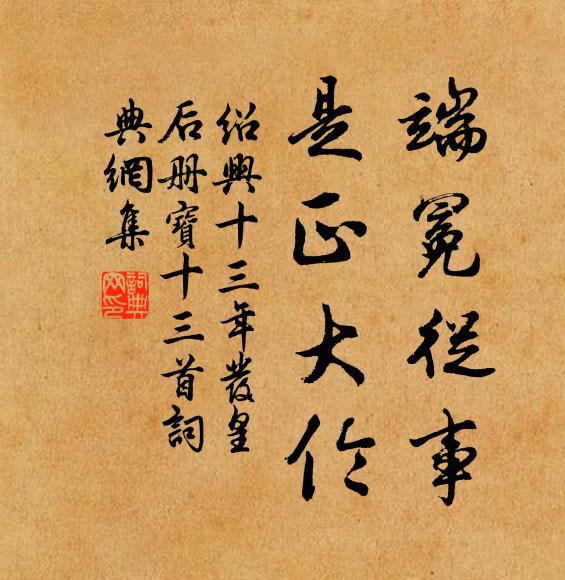 端冕從事
是正大伦
紹興十三年發皇
后册寶十三首詞
典網集
詞典網印